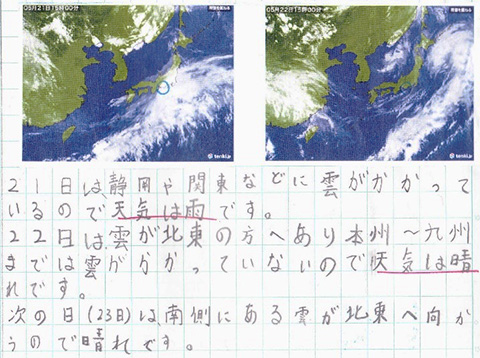 05月21日15時00分
tenki.jp
05月22日15時00分
tenki.jp
21日は、静岡や関東などに雲がかかって
いるので天気は雨です。
22日は、雲が北東の方へあり本州~九州
までは雲がかかっていないので天気は晴
れです。
次の日(23日)は、南側にある雲が北東へ向か
うので晴れです。